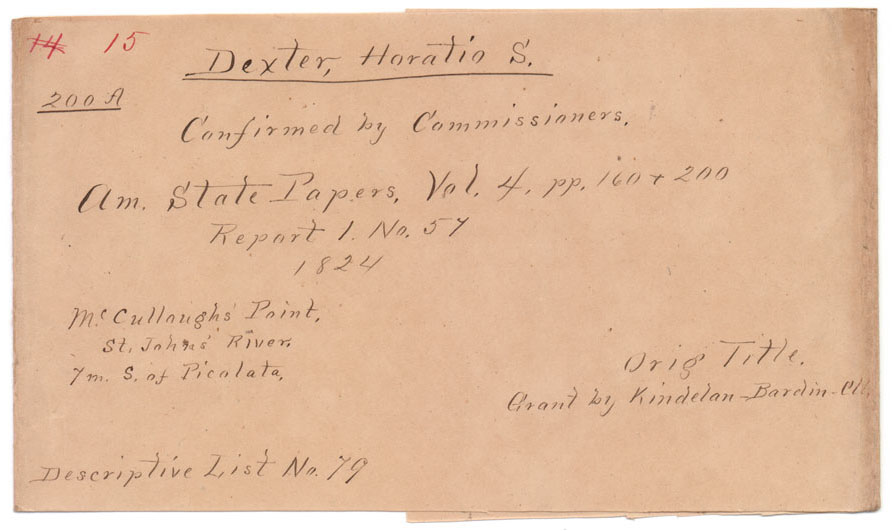 14 15
Dexter, Horatio S.
200 A
Confirmed by Commissioners.
Am. State Papers, Vol. 4, pp. 160 + 200
Report 1. No. 57
1824
Mc Cullaughs' Point,
St. Johns' River
7 m. S. of Picolata,
Orig Title.
Grant by Kindelan - Bardin -
Descriptive List No. 79